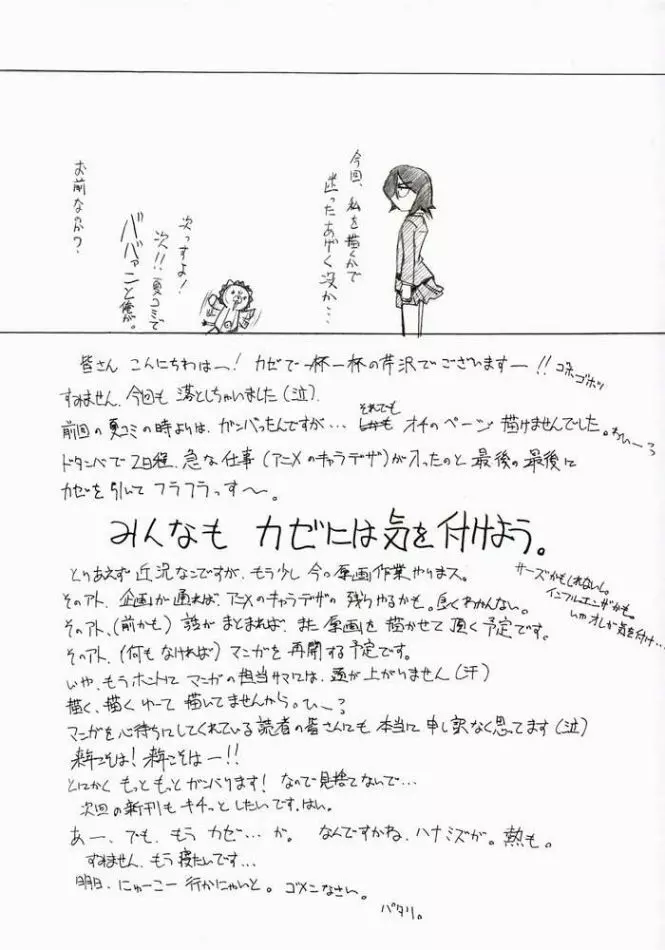 今回、私を描くかで
迷ったあげく没か…
次っすよ!
次!!夏コミで
ババァーンと俺が。
お前なのか?
皆さん こんにちわはー! カゼで一杯一杯の芹沢でございますー!! ゴホゴホッ
すみません、今回も 落としちゃいました(泣)
前回の夏コミの時よりは、ガンバったんですが… それでも オチのページ 描けませんでした。わぃー?
ドタンバで 2日程、急な仕事(アニメのキャラデザ)が入ったのと 最後の最後に
カゼを引いて フラフラっす〜。
みんなも カゼには気を付けよう。
サーズかもしれないし。
インフルエンザかも。
いや オレが気を付け…
とりあえず 近況なこですが、もう少し 今の原画作業やりまス。
そのアト、企画が通れば、アニメのキャラデザの残りやるかも。良くわかんない。
そのアト、(前かも) 話がまとまれば、また 原画を 描かせて頂く予定です。
そのアト、(何もなければ) マンガを 再開する予定です。
いや、もうホントに マンガの担当サマには、頭が上がりません(汗)
描く、描くゆーて 描いてませんから。ひー?
マンガを心待ちにしてくれている読者の皆さんにも 本当に 申し訳なく思ってます(泣)
来年こそは! 来年こそはー!!
とにかく もっともっとガンバります! なので見捨てないで…
次回の新刊も キチっとしたいです、はい。
あー、でも、もう カゼ…が。 なんですかね、ハナミズが。熱も。
すみません、もう寝たいです…
明日、にゅーこー 行かにゃいと。ゴメンなさい。
パタリ。